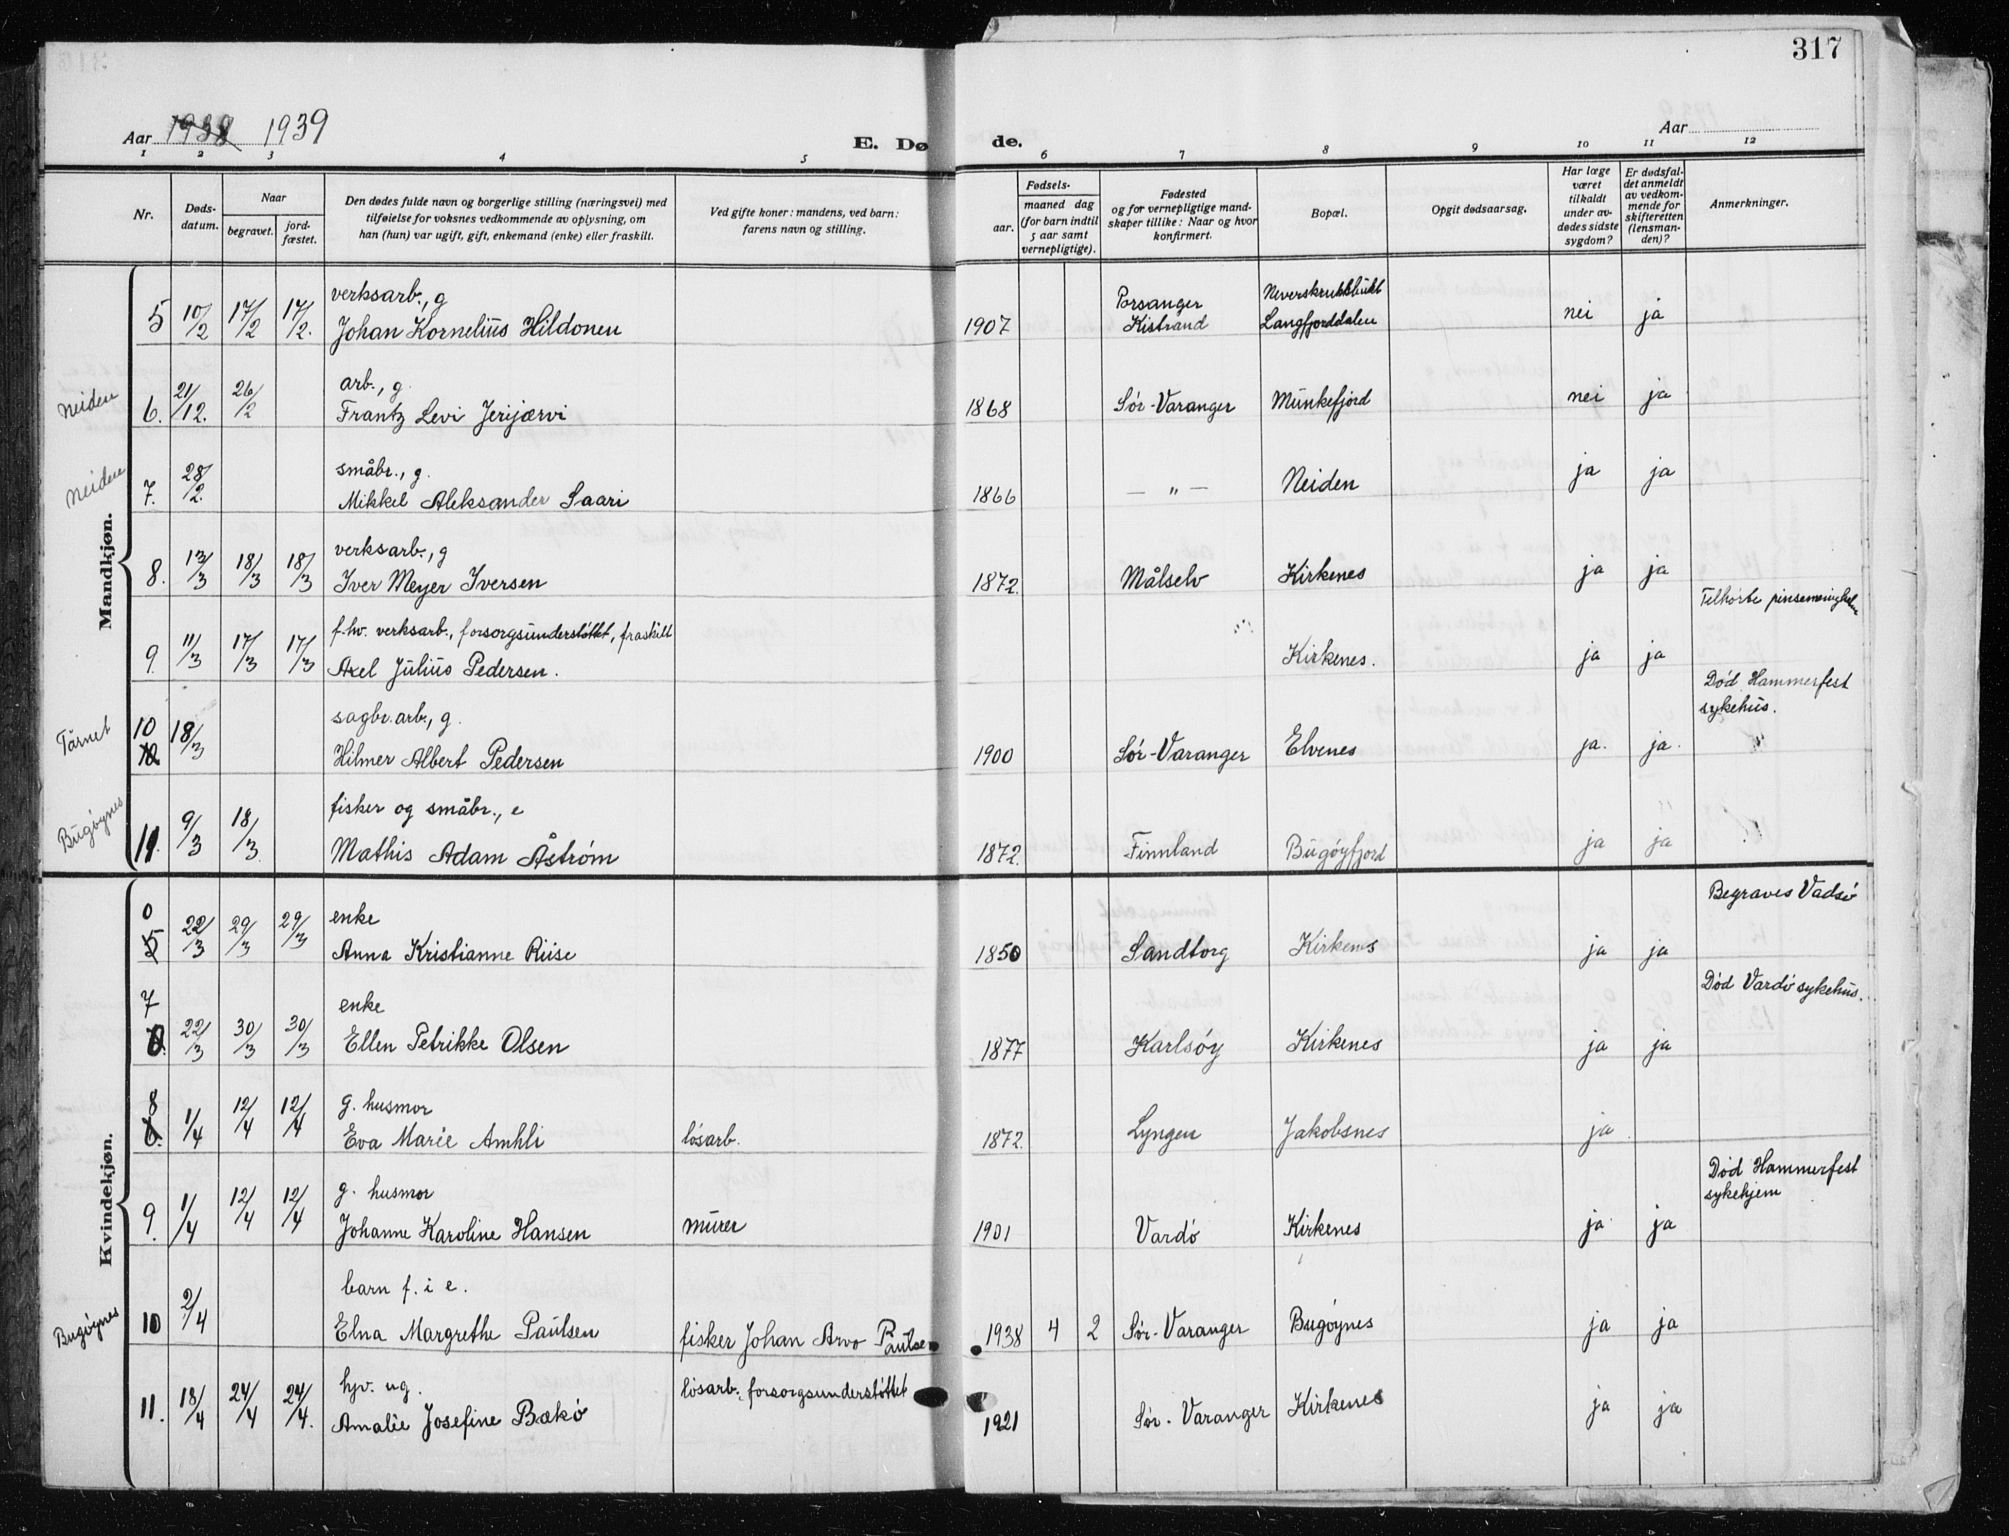 317
Aar 1938 1939
E. Døde.
Aar
1 2 3 4 5 6 7 8 9 10 11 12
Nr.
Døds-datum.
Naar
begravet.
jord-fæstet.
Den dødes fulde navn og borgerlige stilling (næringsvei) med
tilføielse for voksnes vedkommende av oplysning, om
han (hun) var ugift, gift, enkemand (enke) eller fraskilt.
Ved gifte koner: mandens, ved barn:
farens navn og stilling.
Fødsels-
aar.
maaned dag
(for barn indtil
5 aar samt
vernepligtige).
Fødested
og for vernepligtige mand-
skaper tillike: Naar og hvor
konfirmert.
Bopæl.
Opgit dødsaarsag.
Har læge
været
tilkaldt
under av-
dødes sidste
sygdom?
Er dødsfal-
det anmeldt
av vedkom-
mende for
skifteretten
(lensman-
den)?
Anmerkninger.
Mandkjøn.
verksarb., g Porsanger Neverskrukkbukt
5 10/2 17/2 17/2. Johan Kornelius Hildonen 1907 Kistrand Langfjorddalen nei ja
arb., g.
Neiden 6. 21/12. 26/2 Frantz Levi Jerijærvi 1868 Sör-Varanger Munkefjord nei ja
småbr., g.
Neiden 7. 28/2. Mikkel Aleksander Saari 1866 — " — Neiden ja ja
verksarb., g
8. 13/3 18/3 18/3 Iver Meyer Iversen 1872. Målselv Kirkenes ja ja
f.hv. verksarb., forsorgsunderstöttet, fraskilt Tilhörte pinsemenigheten
9. 11/3 17/3 17/3 Axel Julius Pedersen. Kirkenes. ja ja
sagbr.arb., g. Död Hammerfest
sykehus.
Tårnet 10 18/3 Hilmer Albert Pedersen 1900 Sör-Varanger Elvenes ja. ja.
fisker og småbr., e
Bugöynes 11. 9/3 18/3. Mathis Adam Åström 1872. Finnland Bugöyfjord ja ja
Kvindekjøn.
enke Begraves Vadsö
22/3 29/3 29/3 Anna Kristianne Riise 1850 Sandtorg Kirkenes ja ja
7 enke Död Vardö sykehus.
22/3 30/3 30/3 Ellen Petrikke Olsen 1877 Karlsöy Kirkenes ja ja
8 g. husmor
1/4 12/4 12/4 Eva Marie Amhli lösarb. 1872. Lyngen Jakobsnes ja
g. husmor Död Hammerfest
sykehjem
9. 1/4 12/4 12/4 Johanne Karoline Hansen murer 1901 Vardö Kirkenes ja ja
barn f. i e.
Bugöynes 10 2/4 Elna Margrethe Paulsen fisker Johan Arvo Paulsen 1938 4 2 Sör-Varanger Bugöynes ja ja
hjv. ug. lösarb., forsorgsunderstöttet
11. 18/4 24/4 24/4. Amalie Josefine Bækö 1921 Sör-Varanger Kirkenes ja ja